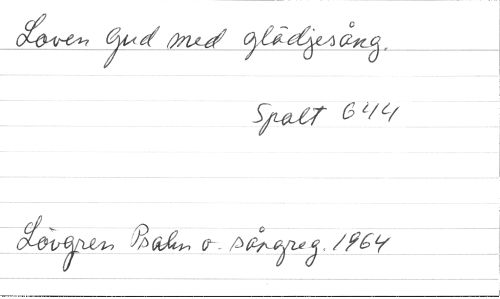 Loven Gud med glädjesång.
Spalt 644
Lövgren Psalm o. sångreg. 1964